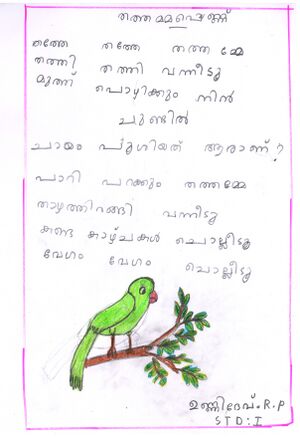 തത്തമ്മപ്പെണ്ണ്
തത്തേ തത്തേ തത്തമ്മേ
തത്തി തത്തി വന്നീടൂ
മുത്ത് പൊഴിക്കും നിൻ
ചുണ്ടിൽ
ചായം പൂശിയത് ആരാണ്?
പാറി പറക്കും തത്തമ്മേ
താഴത്തിറങ്ങി വന്നീടൂ
കണ്ട കാഴ്ചകൾ ചൊല്ലീടൂ
വേഗം വേഗം ചൊല്ലീടൂ
ഉണ്ണിദേവ്.R.P
STD:I